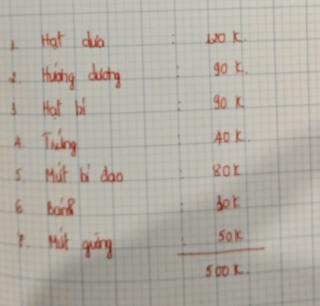 1. Hạt dưa : 120 K.
2. Hướng dương : 90 K.
3. Hạt bí : 90 K
4. Trứng : 40 K.
5. Mứt bí đao : 80K
6. Bánh : 30K
7. Mứt gừng : 50K
500K.